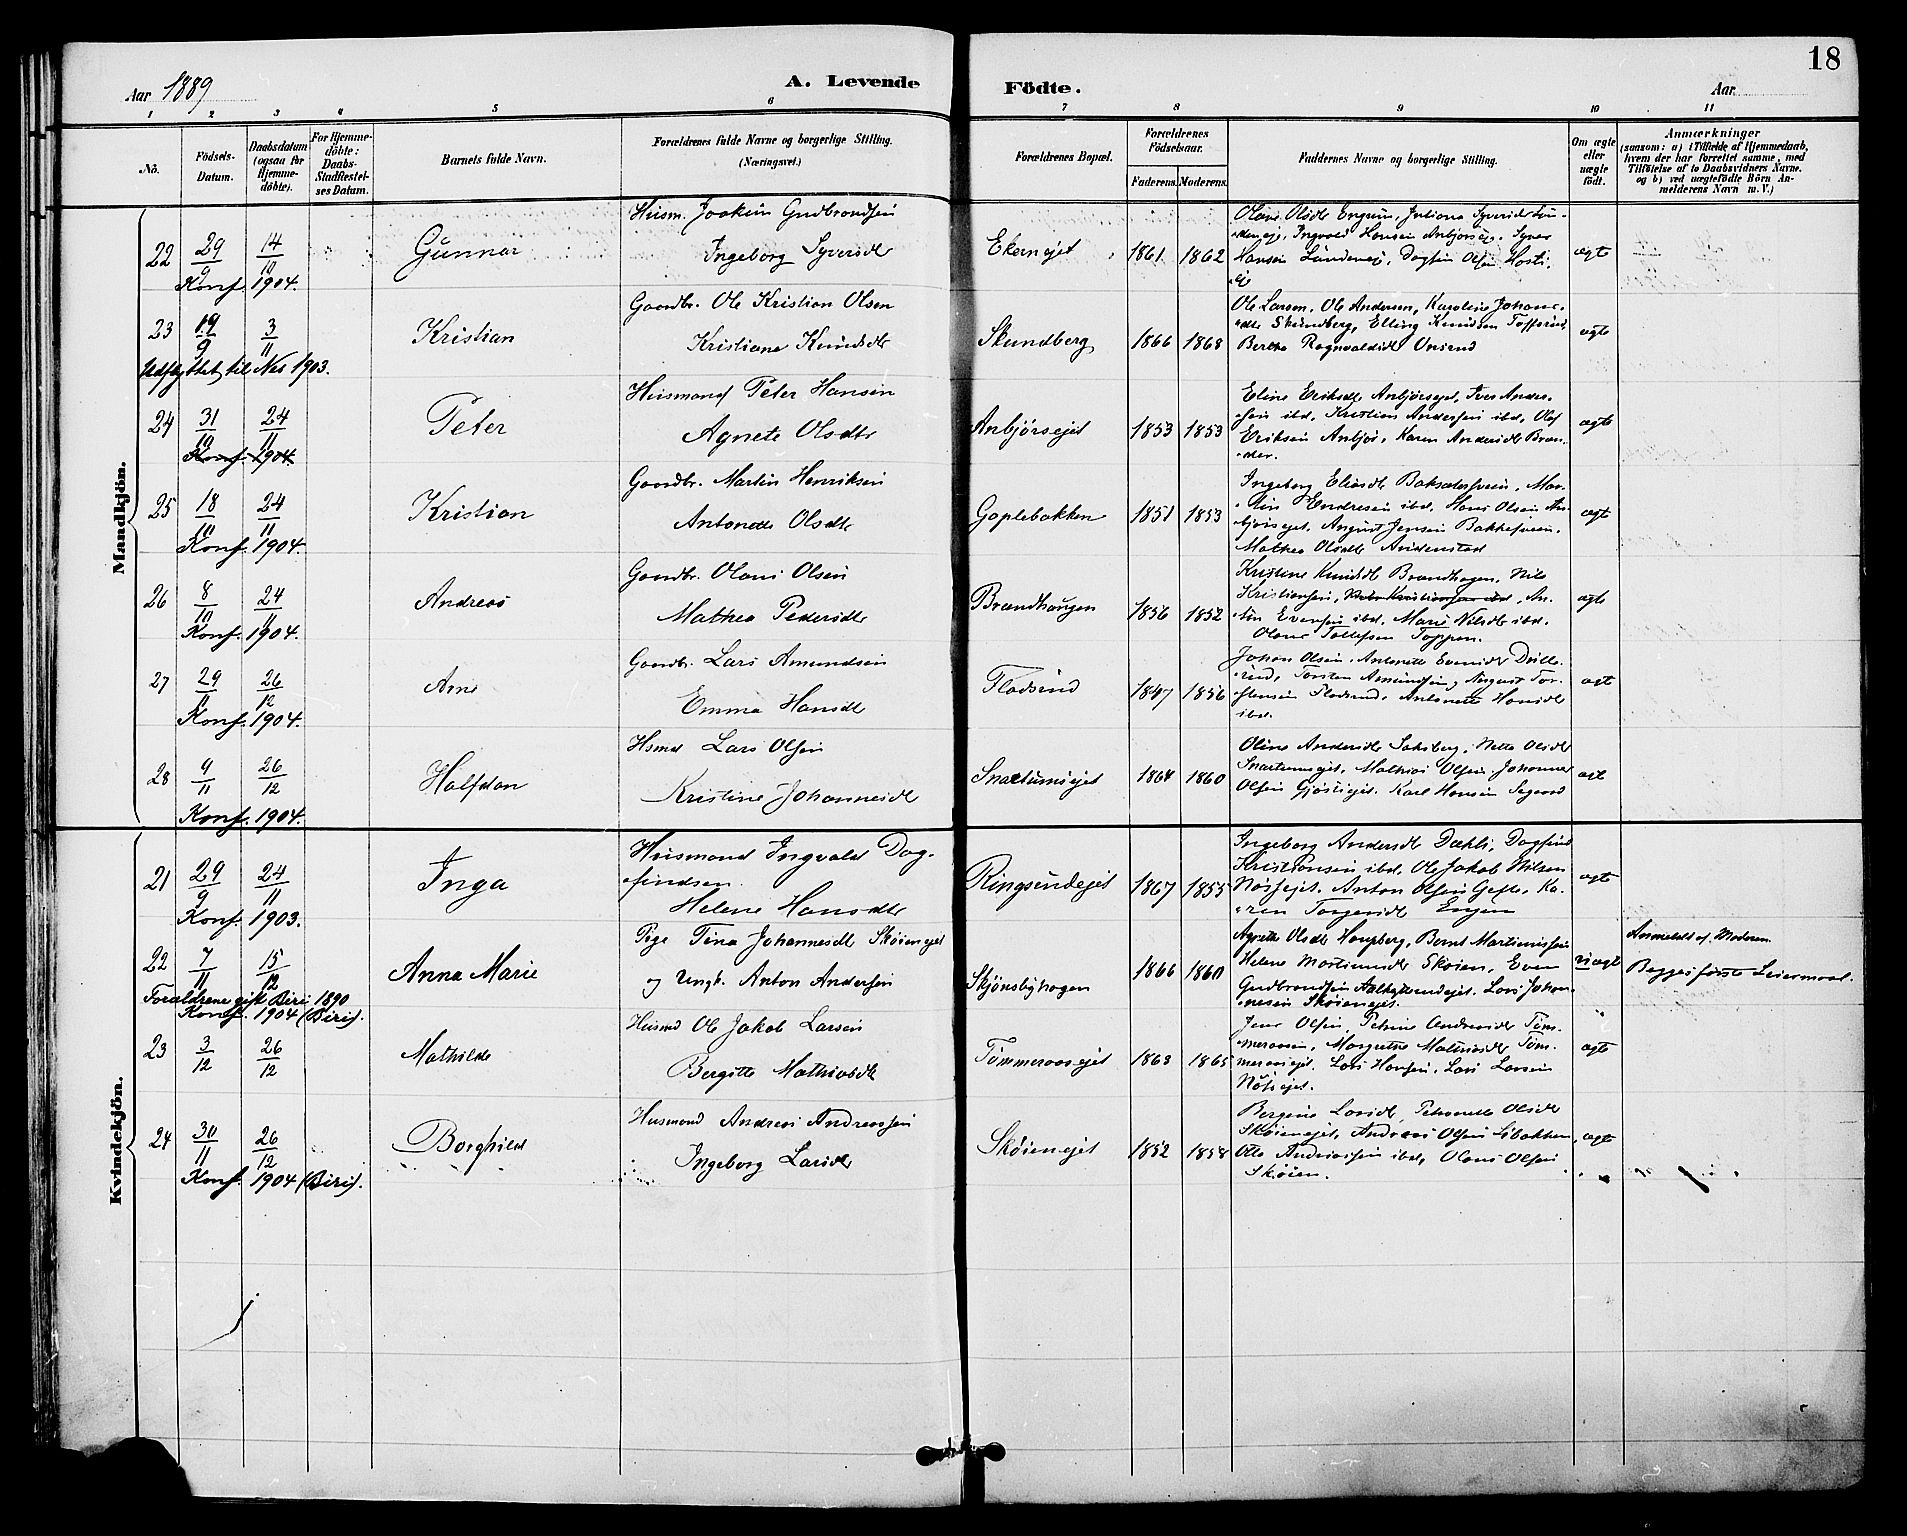 18
Aar 1889
A. Levende
Födte.
Aar
1 2 3 4 5 6 7 8 9 10 11
No.
Födsels-
Datum.
Daabsdatum
(ogsaa for
Hjemme-
döbte).
For Hjemme-
döbte:
Daabs-
Stadfæstel-
ses Datum.
Barnets fulde Navn.
Forældrenes fulde Navne og borgerlige Stilling.
(Næringsvei.)
Forældrenes Bopæl.
Forældrenes
Födselsaar.
Faderens.
Moderens.
Faddernes Navne og borgerlige Stilling.
Om ægte
eller
uægte
födt.
Anmærkninger
(saasom: a) i Tilfælde af Hjemmedaab,
hvem der har forrettet samme, med
Tilföielse af to Daabsvidners Navne.
og b) ved uægtefödte Börn An-
melderens Navn m. V.)
Mandkjön.
22 29/9 14/10 Gunnar
Husm. Joakim Gudbrandsen
Ingeborg Syversdtr
Ekernejet 1861 1862
Hansen Lundeneje, Dagfin Olsen
ægte
Konf. 1904.
23 19/9 3/11 Kristian
Gaardbr. Ole Kristian Olsen
Kristiane Knudsdtr
Skundberg 1866 1868
Ole Larsen, Ole Andersen, Karoline Johann-
Skundberg, Elling Knudsen
Berthe Ragnvaldsdtr
ægte
Udflyttet til Nes 1903.
24 31/10 24/11 Peter
Husmand Peter Hansen
Agnete Olsdtr
Anbjörsejet 1853 1853
Eline Eriksdtr Anbjörsejet, Iver Ander-
sen ibd, Kristian Andersen ibd, Olaf
Eriksen Anbjör, Karen Andersdtr
ægte
Konf. 1904.
25 18/10 24/11 Kristian
Gaardbr. Martin Henriksen
Antonette Olsdtr
Gaplebakken 1851 1853
Ingeborg Eliasdtr
Endresen ibd. Hans Olsen An-
björsejet. August Jensen
Mathea Olsdtr
ægte
Konf. 1904.
26 8/10 24/11 Andreas
Gaardbr. Olaus Olsen
Mathea Pedersdtr
Brændhaugen 1856 1852
Kristine Knudsdtr Brændhagen, Nils
Kristiansen, An-
ton Evensen ibd. Marie Nilsdtr ibd.
Tollefsen Toppen.
ægte
Konf. 1904.
27 29/11 26/12 Arne
Gaardbr. Lars Amundsen
Emma Hansdtr
Fladsrud 1847 1856
Johan Olsen, Antonette Evensdtr
Torsten Amundsen, August Tor-
stensen Fladsrud, Antonette Hansdtr
ibd.
ægte
Konf. 1904.
28 9/11 26/12 Halfdan
Hsmd Lars Olsen
Kristine Johannesdtr
Snartumsejet 1864 1860
Oline Andersdtr, Mette Olsdtr
Snartumsejet, Mathias Olsen, Johannes
Olsen, Karl Hansen
ægt
Konf. 1904.
Kvindekjön.
21 29/9 24/11 Inga
Husmand Ingvald Dag-
findsen.
Helene Hansdtr
Ringsrudejet 1867 1855
Ingeborg Andersdtr Dæhli, Dagfind
Kristiansen ibd, Ole Jakob Nilsen
Anton Olsen, Ka-
ren Torgersdtr
ægte
Konf. 1903.
22 7/11 15/12 Anna Marie
Pige Tina Johannesdtr Skøienejet
og Ungk. Anton Andersen
Skjønsbyhagen 1866 1860
Agnethe Olsdtr Haugberg, Bernt Martiniussen
Helene Martinusdtr Skøien, Even
Gudbrandsen, Lars Johan-
nesen Skøienejet.
uægt
Anmeldt af Moderen.
Begges første Leiermaal.
Forældrene gift Biri 1890
Konf. 1904 (Biri).
23 3/12 26/12 Mathilde
Husmd Ole Jakob Larsen
Bergitte Mathiasdtr
Tømmeraasejet 1863 1865
Jens Olsen, Petrine Andreasdtr Tøm-
meraasen, Margrethe Mathiasdtr Tøm-
meraasejet, Lars Hansen, Lars Larsen
ægte
24 30/11 26/12 Borghild
Husmand Andreas Andreassen
Ingeborg Larsdtr
Skøienejet 1852 1858
Bergine Larsdtr, Petronelle Olsdtr
Skøienejet, Andreas Olsen
Otto Andreassen ibd, Olaus Olsen
Skøien.
ægte
Konf. 1904 (Biri).